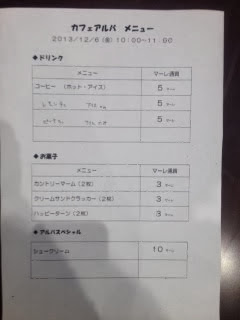 カフェアルパ メニュー
2013/12/6 (金) 10:00～11:00
◆ドリンク
メニュー マーレ通貨
コーヒー (ホット・アイス) 5 マーレ
レモンティ アイス 5 マーレ
ピーチティ 5 マーレ
◆お菓子
メニュー マーレ通貨
カントリーマーム(2枚) 3 マーレ
クリームサンドクラッカー(2枚) 3 マーレ
ハッピーターン(2枚) 3 マーレ
◆アルパスペシャル
シュークリーム 10 マーレ